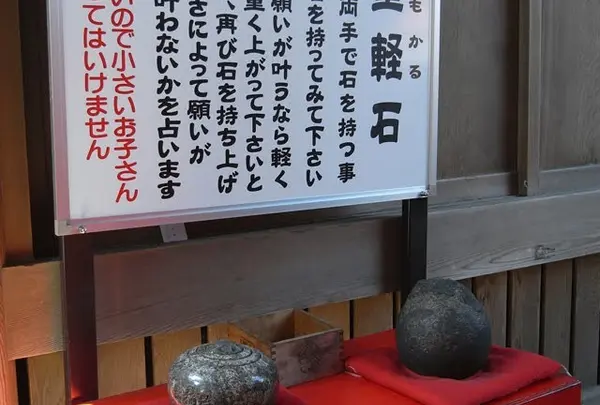 重軽石
もかる
両手で石を持つ事
を持ってみて下さい
願いが叶うなら軽く
重く上がって下さいと
、再び石を持ち上げ
さによって願いが
叶わないかを占います
いので小さいお子さん
てはいけません